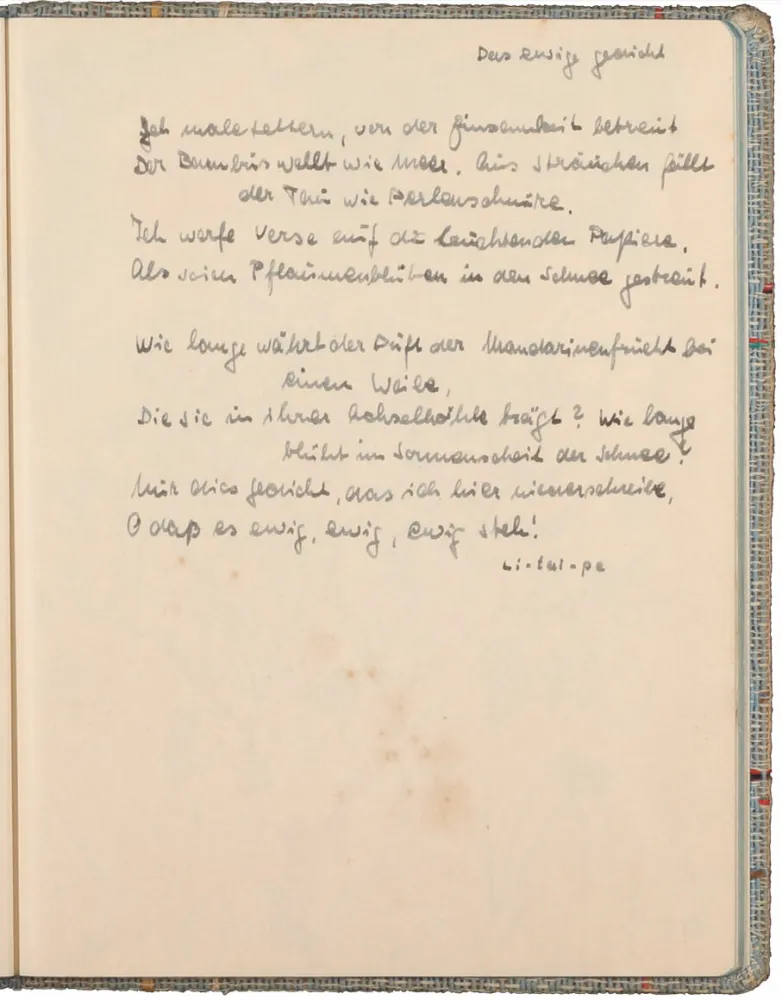 Das ewige Gedicht
Ich male Lettern, von der Einsamkeit betreut
Der Bambus wellt wie Meer. Aus Sträuchern fällt
der Tau wie Perlenschnüre.
Ich werfe Verse auf die leuchtenden Papiere,
Als seien Pflaumenblüten in den Schnee gestreut.
Wie lange währt der Duft der Mandarinenfrucht bei
einem Weibe,
Die sie in ihrer Achselhöhle trägt? Wie lange
blüht im Sonnenscheit der Schnee?
Nur dies Gedicht, das ich hier niederschreibe,
O daß es ewig, ewig, ewig steh!
Li-tai-pe